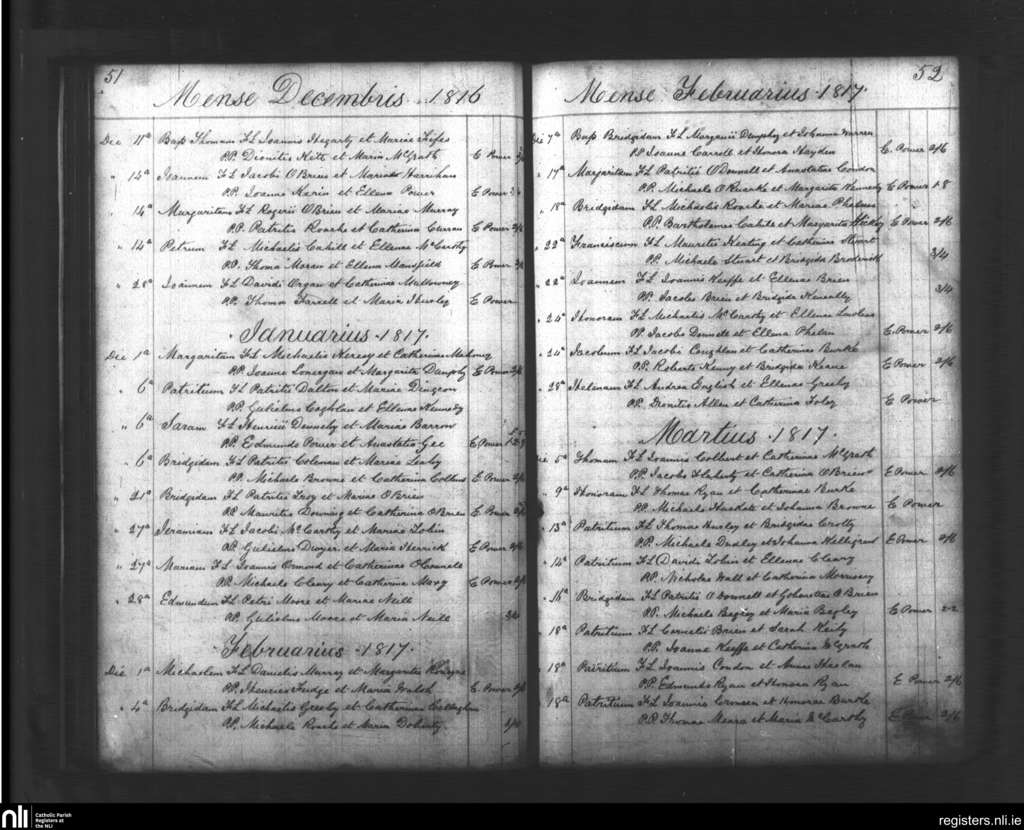 51
Mense Decembris 1816
Die 11ª Bap Thomam FL Ioannis Hegarty et Mariæ Fifes
PP. Dionitis Hitt et Maria McGrath E Power
" 12ª Ioannem FL Iacobi O'Brien et Mariæ Harrihan
PP. Ioanne Harin et Ellena Power E Power
" 14ª Margaritam FL Rogerii O'Brien et Mariæ Murray
PP. Patritis Roache et Catherina Curran E Power 2/6
" 14ª Petrum FL Michaelis Cahill et Ellenæ McCarthy
PP. Thoma Moran et Ellena Mansfield E Power
" 28ª Ioannem FL Davidis Organ et Catherinæ Mullowney
PP. Thoma Farrell et Maria Hurley E Power
Ianuarius 1817.
Die 1ª Margaritam FL Michaelis Heresy et Catherinæ Mahony
PP. Ioanne Lonergan et Margarita Dunphy E Power 2/6
" 6ª Patritium FL Patritis Dalton et Mariæ Dingeon
PP. Gulielmo Coghlan et Ellenæ Kennedy
" 6ª Saram FL Henrici Dennehy et Mariæ Barron
PP. Edmundo Power et Anastatia Gee E Power
" 6ª Bridgidam FL Patritis Coleman et Mariæ Leahy
PP. Michaele Browne et Catherina Collins E Power 2/6
" 21ª Bridgidam FL Patritis Troy et Mariæ O'Brien
PP. Mauritis Downing et Catherina O'Brien E Power
" 27ª Ieramiam FL Iacobi McCarthy et Mariæ Tobin
PP. Gulielmo Dwyer et Maria Herrick E Power 2/6
" 27ª Mariam FL Ioannis Ormond et Catherinæ O'Connell
PP. Michaele Cleary et Catherina Mary E Power
" 28ª Edmundum FL Petri Moore et Mariæ Neill
PP. Gulielmo Moore et Maria Neill
Februarius 1817.
Die 1ª Michaelem FL Danielis Murray et Margarita
PP. Henricus Fudge et Maria Walsh E Power
" 4ª Bridgidam FL Michaelis Greehy et Catherinæ Callaghan
PP. Michaele Roache et Maria Doherty
52
Mense Februarius 1817.
Die 7ª Bap Bridgidam FL Margarii Dunphy et Iohanna Warren
PP Ioanne Carroll et Honora Hayden E Power 2/6
" 17ª Margaritam FL Patritis O'Donnell et Anastatiæ Condon
PP. Michaele O'Rourke et Margarita Kennedy E Power 1 8
" 18ª Bridgidam FL Michaelis Roache et Mariæ Phelan
PP. Bartholomeo Cahill et Margarita E Power 2/6
" 22ª Franciscum FL Mauritis Keating et Catherinæ Stuart
PP. Michaele Stuart et Bridgida Broderick 3/4
" 22ª Ioannem FL Ioannis Keeffe et Ellenæ Brien
PP. Iacobo Brien et Bridgida Keneally 3/4
" 24ª Honoram FL Michaelis McCarthy et Ellenæ Lawless
PP. Iacobo Dennell et Ellena Phelan E Power 2/6
" 24ª Iacobum FL Iacobi Coughlan et Catherina Burke
PP. Roberto Kenny et Bridgida Keane E Power 2/6
" 28ª Helenam FL Andrea English et Ellenæ Greehy
PP. Dionitis Allen et Catherina Foley E Power
Martius 1817.
Die 5ª Thomam FL Ioannis Colbert et Catherina McGrath
PP. Iacobo Flaherty et Catherina O'Brien E Power 2/6
" 9ª Honoram FL Thomæ Ryan et Catherinæ Burke
PP. Michaele Hackett et Iohanna Browne E Power
" 13ª Patritium FL Thomæ Hurley et Bridgidæ Crotty
PP. Michaele Dudley et Iohanna Hallegran E Power 2/6
" 14ª Patritium FL Davidis Tobin et Ellenæ Cleary
PP. Nicholas Wall et Catherina Morrissey
" 16ª Bridgidam FL Patritis O'Donnell et O'Brien
PP. Michaele Begley et Maria Begley E Power 2-2
" 18ª Patritium FL Cornelis Brien et Sarah Keily
PP. Ioanne Keeffe et Catherina McGrath
" 18ª Patritium FL Ioannis Condon et Annæ Whelan
PP. Edmundo Ryan et Honora Ryan E Power 2/6
18ª Patritium FL Ioannis Cronsen et Honoræ Burke
PP. Thomas Meara et Maria McCarthy E Power 2/6
nli Catholic Parish
Registers at
the NLI
registers.nli.ie